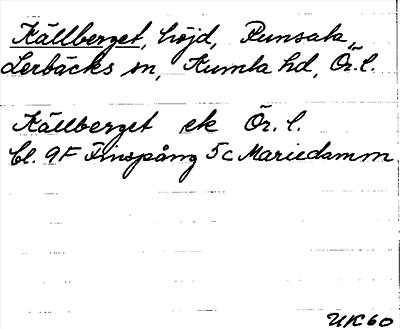 Källberget, höjd, Runsala,
Lerbäcks sn, Kumla hd, Ör. l.
Källberget ek Ör. l.
bl. 9F Finspång 5c Mariedamm
UK60